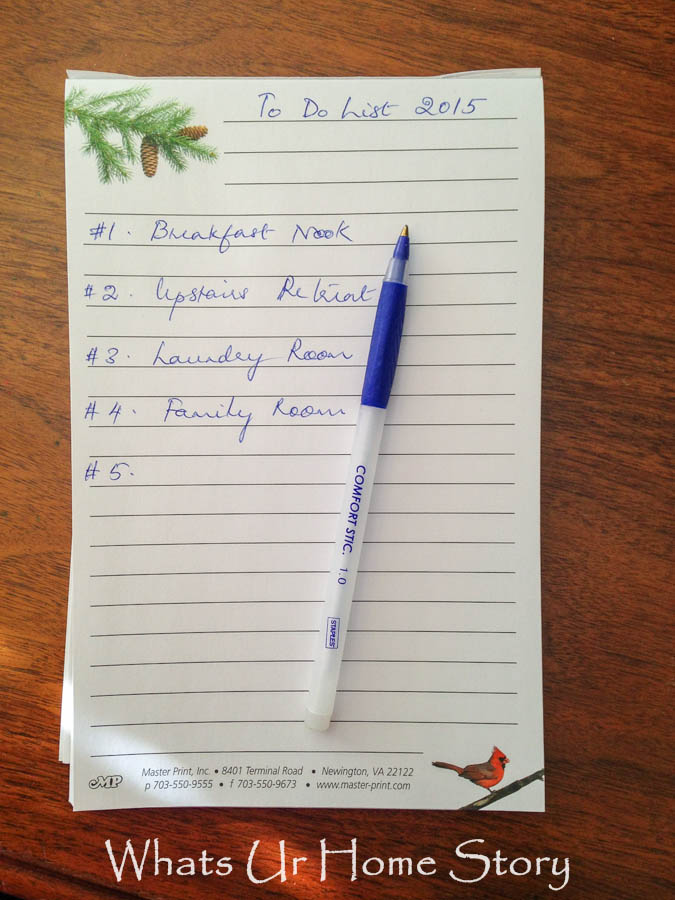 To Do List 2015
#1. Breakfast Nook
#2. Upstairs Retreat
#3. Laundry Room
#4. Family Room
#5.
COMFORT STIC. 1.0
STAPLES
Master Print, Inc. • 8401 Terminal Road • Newington, VA 22122
MP
p 703-550-9555 • f 703-550-9673 • www.master-print.com
Whats Ur Home Story